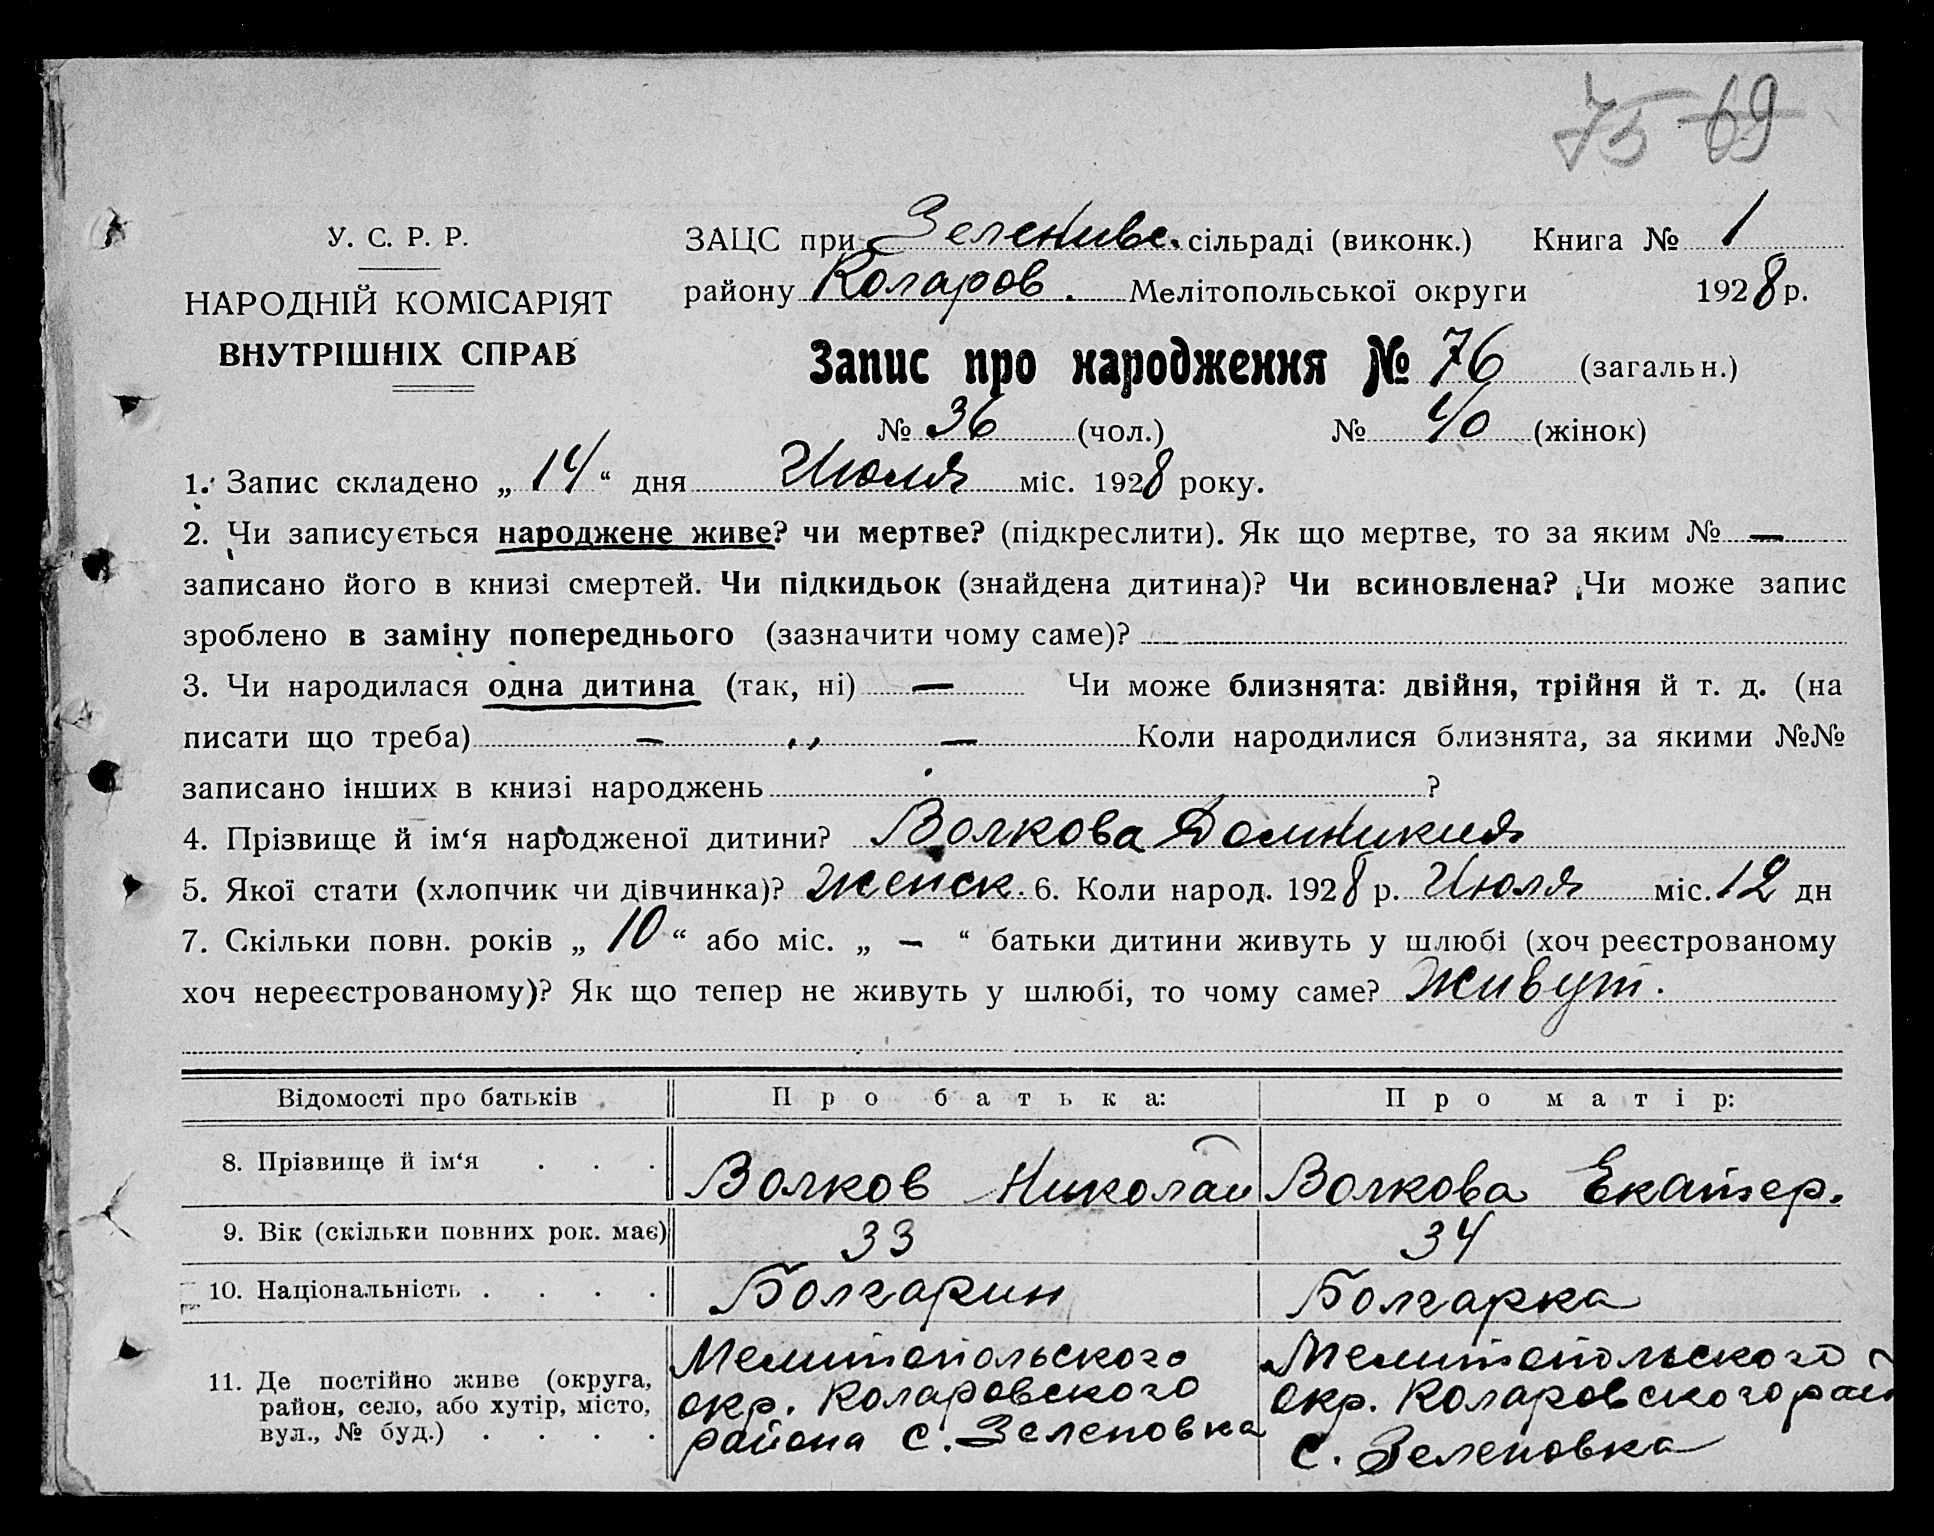 75 69
У. С. Р. Р.
НАРОДНІЙ КОМІСАРІЯТ
ВНУТРІШНІХ СПРАВ
ЗАЦС при Зеленивс. сільраді (виконк.) Книга № 1
району Коларов. Мелітопольської округи 1928 р.
Запис про народження № 76 (загальн.)
№ 36 (чол.) № 40 (жінок)
1. Запис складено „ 14 “ дня Июля міс. 1928 року.
2. Чи записується народжене живе? чи мертве? (підкреслити). Як що мертве, то за яким № —
записано його в книзі смертей. Чи підкидьок (знайдена дитина)? Чи всиновлена? Чи може запис
зроблено в заміну попереднього (зазначити чому саме)?
3. Чи народилася одна дитина (так, ні) — Чи може близнята: двійня, трійня й т. д. (на
писати що треба) — „ — Коли народилися близнята, за якими №№
записано інших в книзі народжень ?
4. Прізвище й ім‘я народженої дитини? Волкова Домникия
5. Якої стати (хлопчик чи дівчинка)? Женск. 6. Коли народ. 1928 р. Июля міс. 12 дн
7. Скільки повн. років „ 10 “ або міс. „ — “ батьки дитини живуть у шлюбі (хоч реєстрованому
хоч нереєстрованому)? Як що тепер не живуть у шлюбі, то чому саме? Живут.
Відомості про батьків Про батька: Про матір:
8. Прізвище й ім‘я . . . Волков Николай Волкова Екатер.
9. Вік (скільки повних рок. має) 33 34
10. Національність . . . . Болгарин Болгарка
11. Де постійно живе (округа,
район, село, або хутір, місто,
вул., № буд.) . . . .
Мелитопольского
окр. Коларовского
района с. Зеленовка
Мелитопольского
окр. Коларовского рай
с. Зеленовка